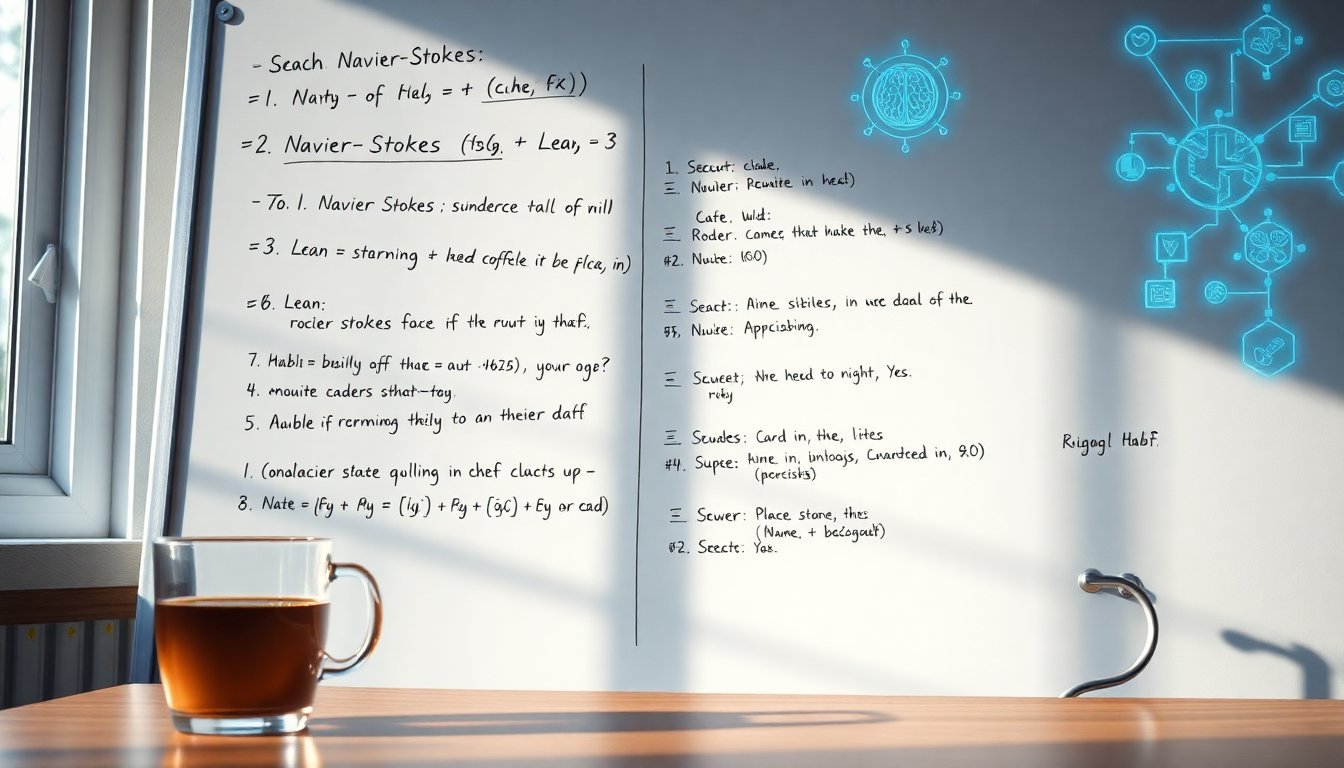 - Seach Navier-Stokes:
=1. Narty - of Hal, = + (cihe, Fx))
=2. Navier-Stokes (fslg. + Lear, = 3
- To. 1. Navier Stokes ; sunderce tall of nill
=3. Lean = starning + ked coffele it be flca, in)
=6. Lean:
rocier stokes face if the ruut iy thaf.
7. Habli = bsilly off thac = aut -1625), your oge?
4. enouite caders sthat-toy.
5. Auble if rcrming thily to an theier daff
1. (onalacier state qolling in chef clacts up -
8. Nate = (Fy + Ry = (ig') + Py + (gC) + Ey or cad)
1. Seccut: clade.
Nuuler: Rcwaite in heal)
Cafe. Wild:
Roder. Comes that hake the, + s les)
#2. Nuite: 160)
Seact:: Aine sibiles, in wre daal of the
Nuise: Appcisbing.
Scuceet; Nre heed to night, Yes.
rety
Scudes: Card in, the, lites
#4. Supce: in, Cnardced in, 9.0)
(percists)
Scwer: Place stone, thes
(Name, + balogout)
#2. Scects: Yox.
Rigagl HabF.